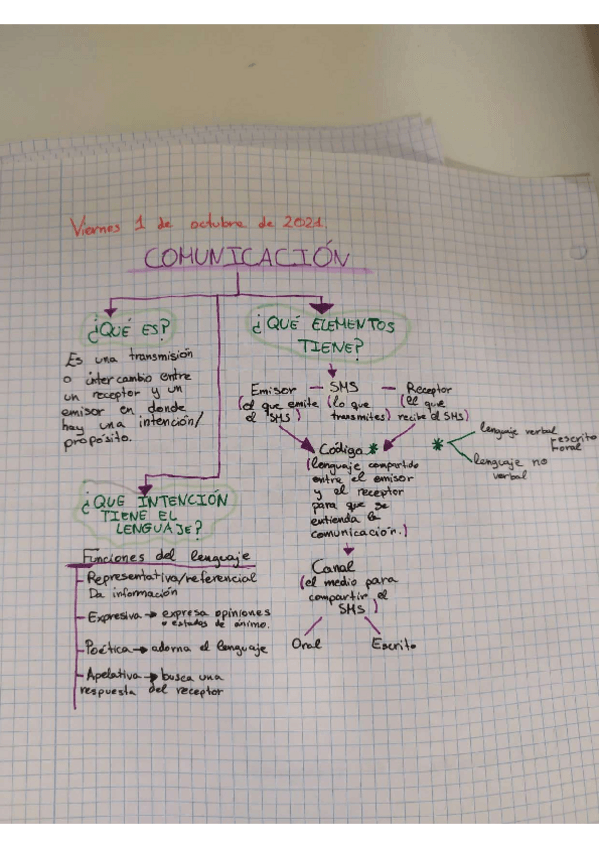 Viernes 1 de octubre de 2021.
COMUNICACIÓN
¿QUÉ ES?
Es una transmisión
o intercambio entre
un receptor y un
emisor en donde
hay una intención/
propósito.
¿QUÉ ELEMENTOS
TIENE?
Emisor — SMS — Receptor
(el que emite (lo que (el que
el SMS) transmites) recibe el SMS)
Código *
(lenguaje compartido
entre el emisor
y el receptor
para que se
entienda la
comunicación.)
* lenguaje verbal
escrito
oral
lenguaje no
verbal
Canal
(el medio para
compartir el
SMS)
Oral Escrito
¿QUE INTENCIÓN
TIENE EL
LENGUAJE?
Funciones del lenguaje
- Representativa/referencial
Da información
- Expresiva → expresa opiniones
o estados de ánimo.
- Poética → adorna el lenguaje
- Apelativa → busca una
respuesta del receptor